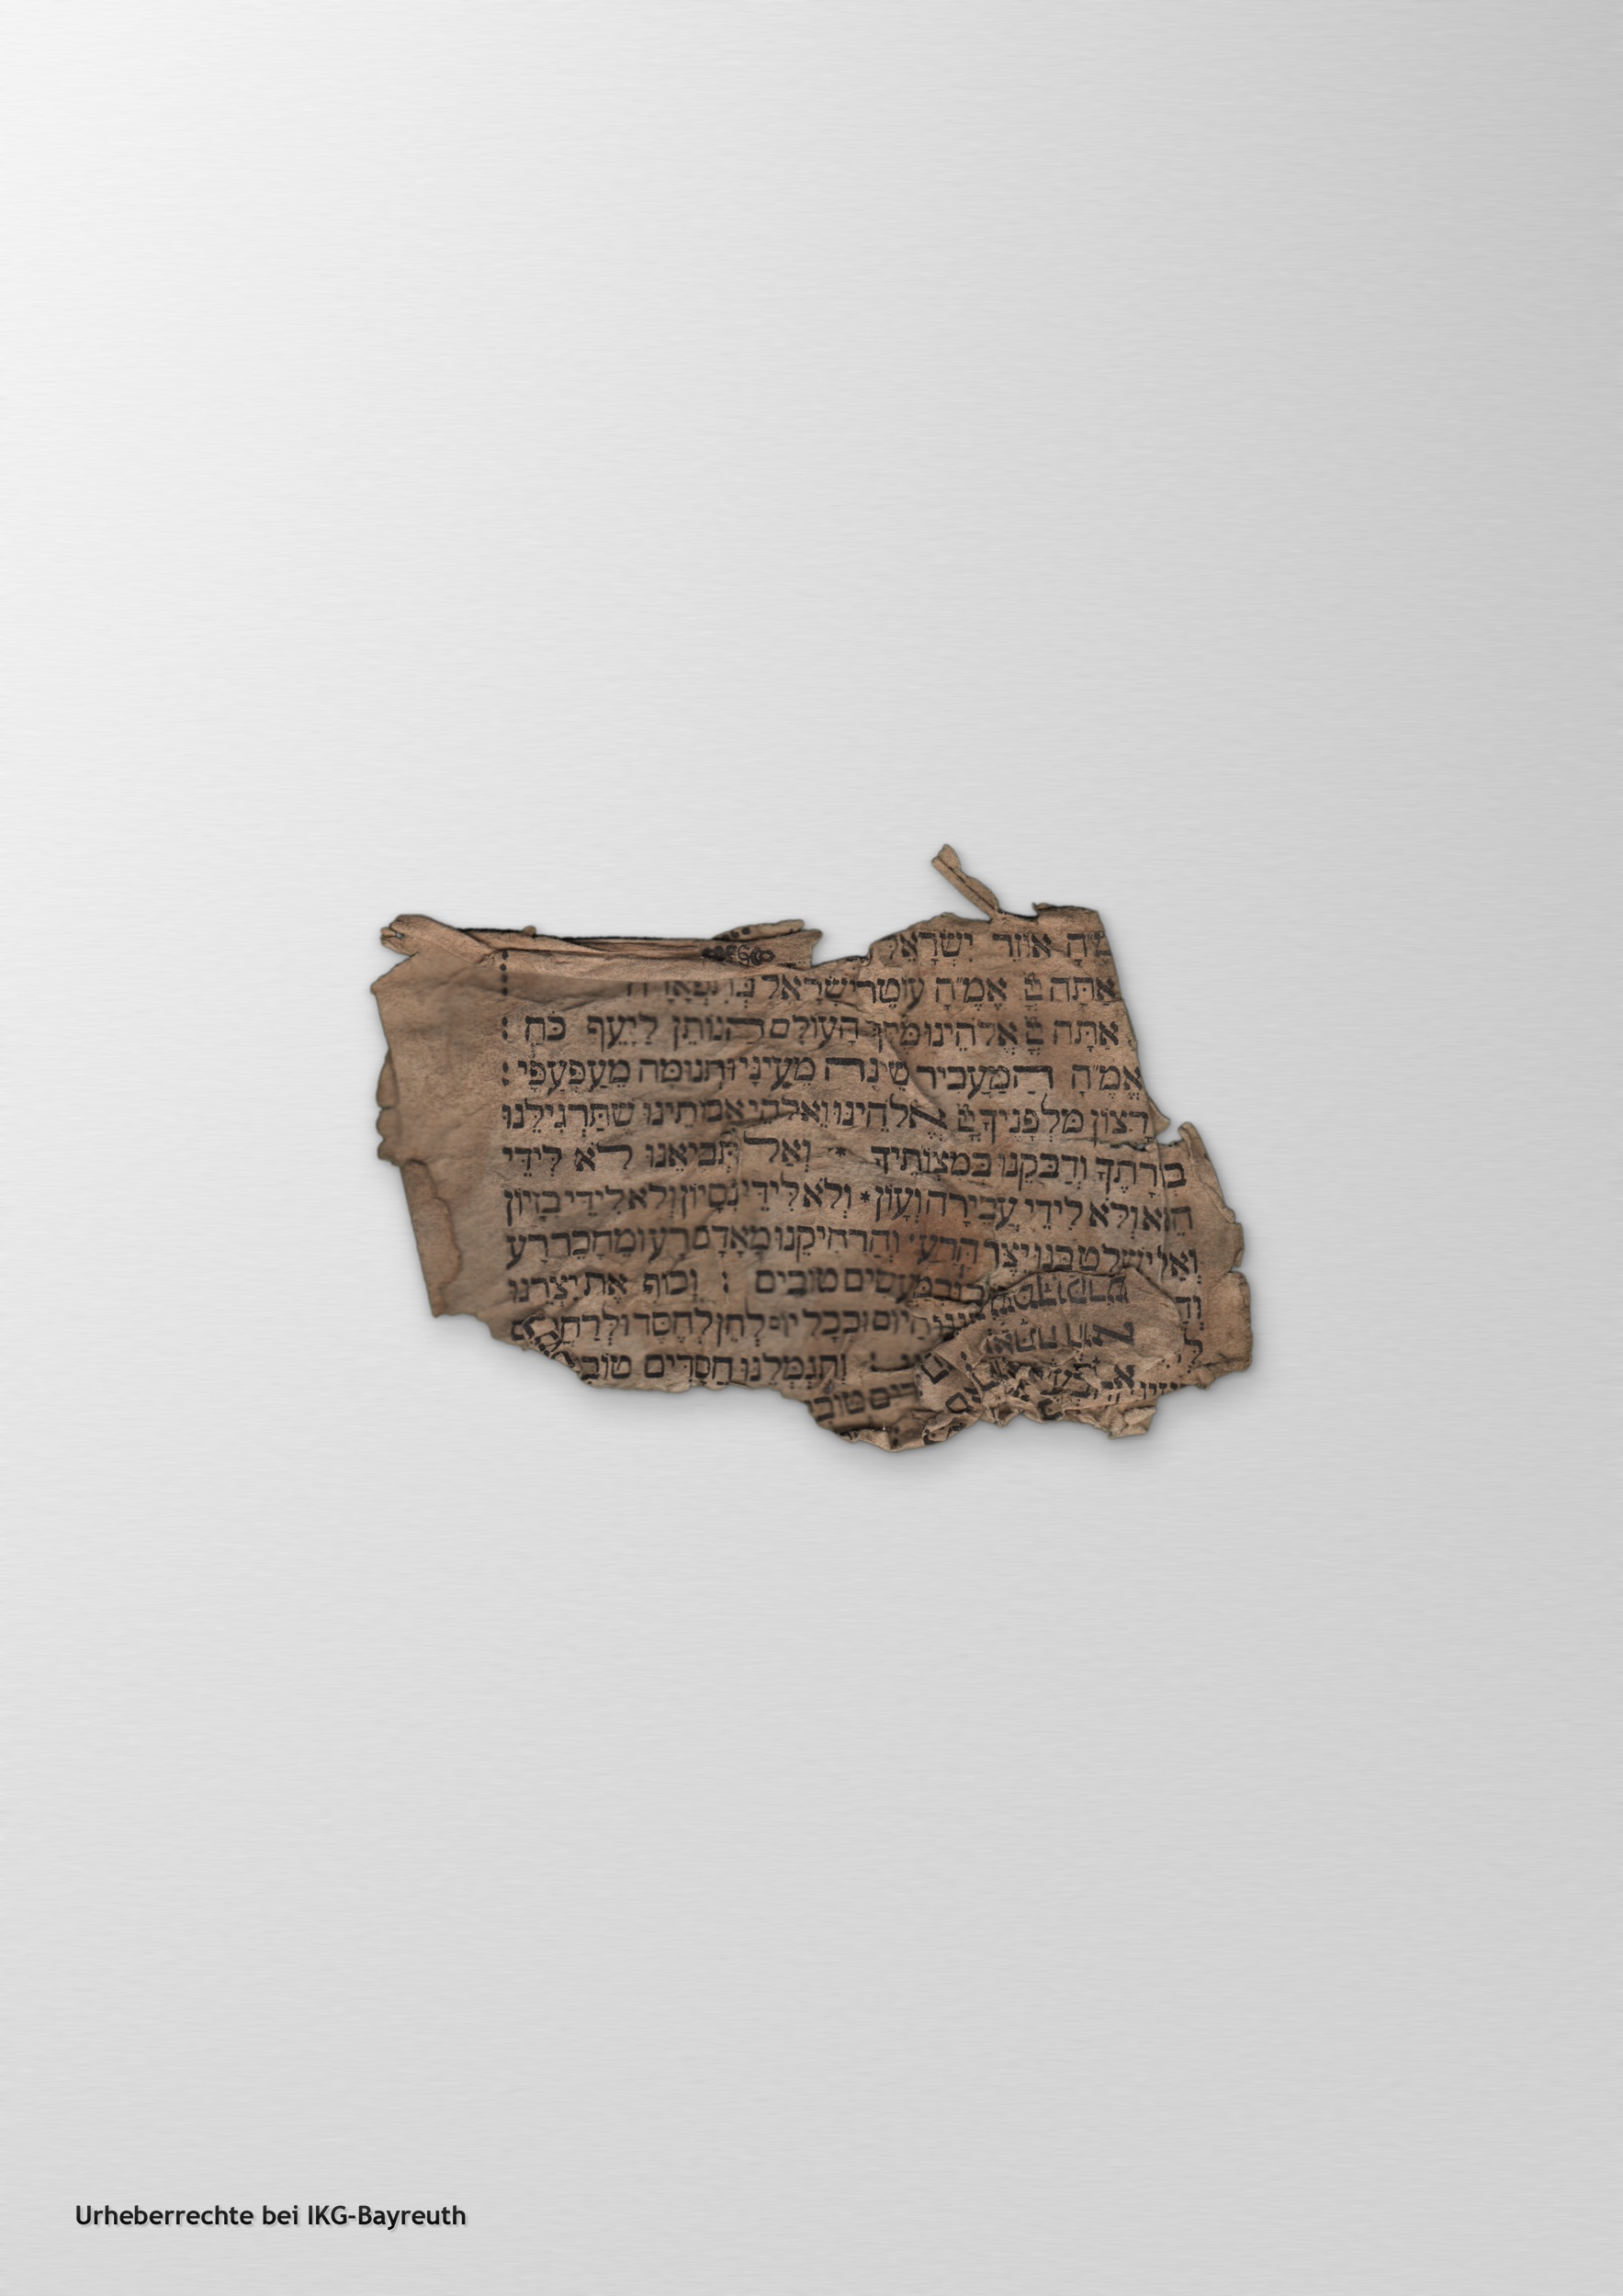 אוֹזֵר יִשְׂרָאֵל
אַתָּה יְיָ אֱמ״ה עוֹטֵר יִשְׂרָאֵל בְּתִפְאָרָה :
אַתָּה יְיָ אֱלֹהֵינוּ מֶלֶךְ הָעוֹלָם הַנּוֹתֵן לַיָּעֵף כֹּחַ :
אֱמ״ה הַמַּעֲבִיר שֵׁינָה מֵעֵינָי וּתְנוּמָה מֵעַפְעַפָּי :
רָצוֹן מִלְּפָנֶיךָ יְיָ אֱלֹהֵינוּ וֵאלֹהֵי אֲבוֹתֵינוּ שֶׁתַּרְגִּילֵנוּ
בְּתוֹרָתֶךָ וְדַבְּקֵנוּ בְּמִצְוֹתֶיךָ * וְאַל תְּבִיאֵנוּ לֹא לִידֵי
חֵטְא וְלֹא לִידֵי עֲבֵירָה וְעָוֹן * וְלֹא לִידֵי נִסָּיוֹן וְלֹא לִידֵי בִזָּיוֹן
וְאַל יִשְׁלֹט בָּנוּ יֵצֶר הָרָע וְהַרְחִיקֵנוּ מֵאָדָם רָע וּמֵחָבֵר רָע
וּבְמַעֲשִׂים טוֹבִים : וְכוֹף אֶת יִצְרֵנוּ
הַיּוֹם וּבְכָל יוֹם לְחֵן לְחֶסֶד וּלְרַחֲ
וְתִגְמְלֵנוּ חֲסָדִים טוֹבִ
טוֹבִ
Urheberrechte bei IKG-Bayreuth